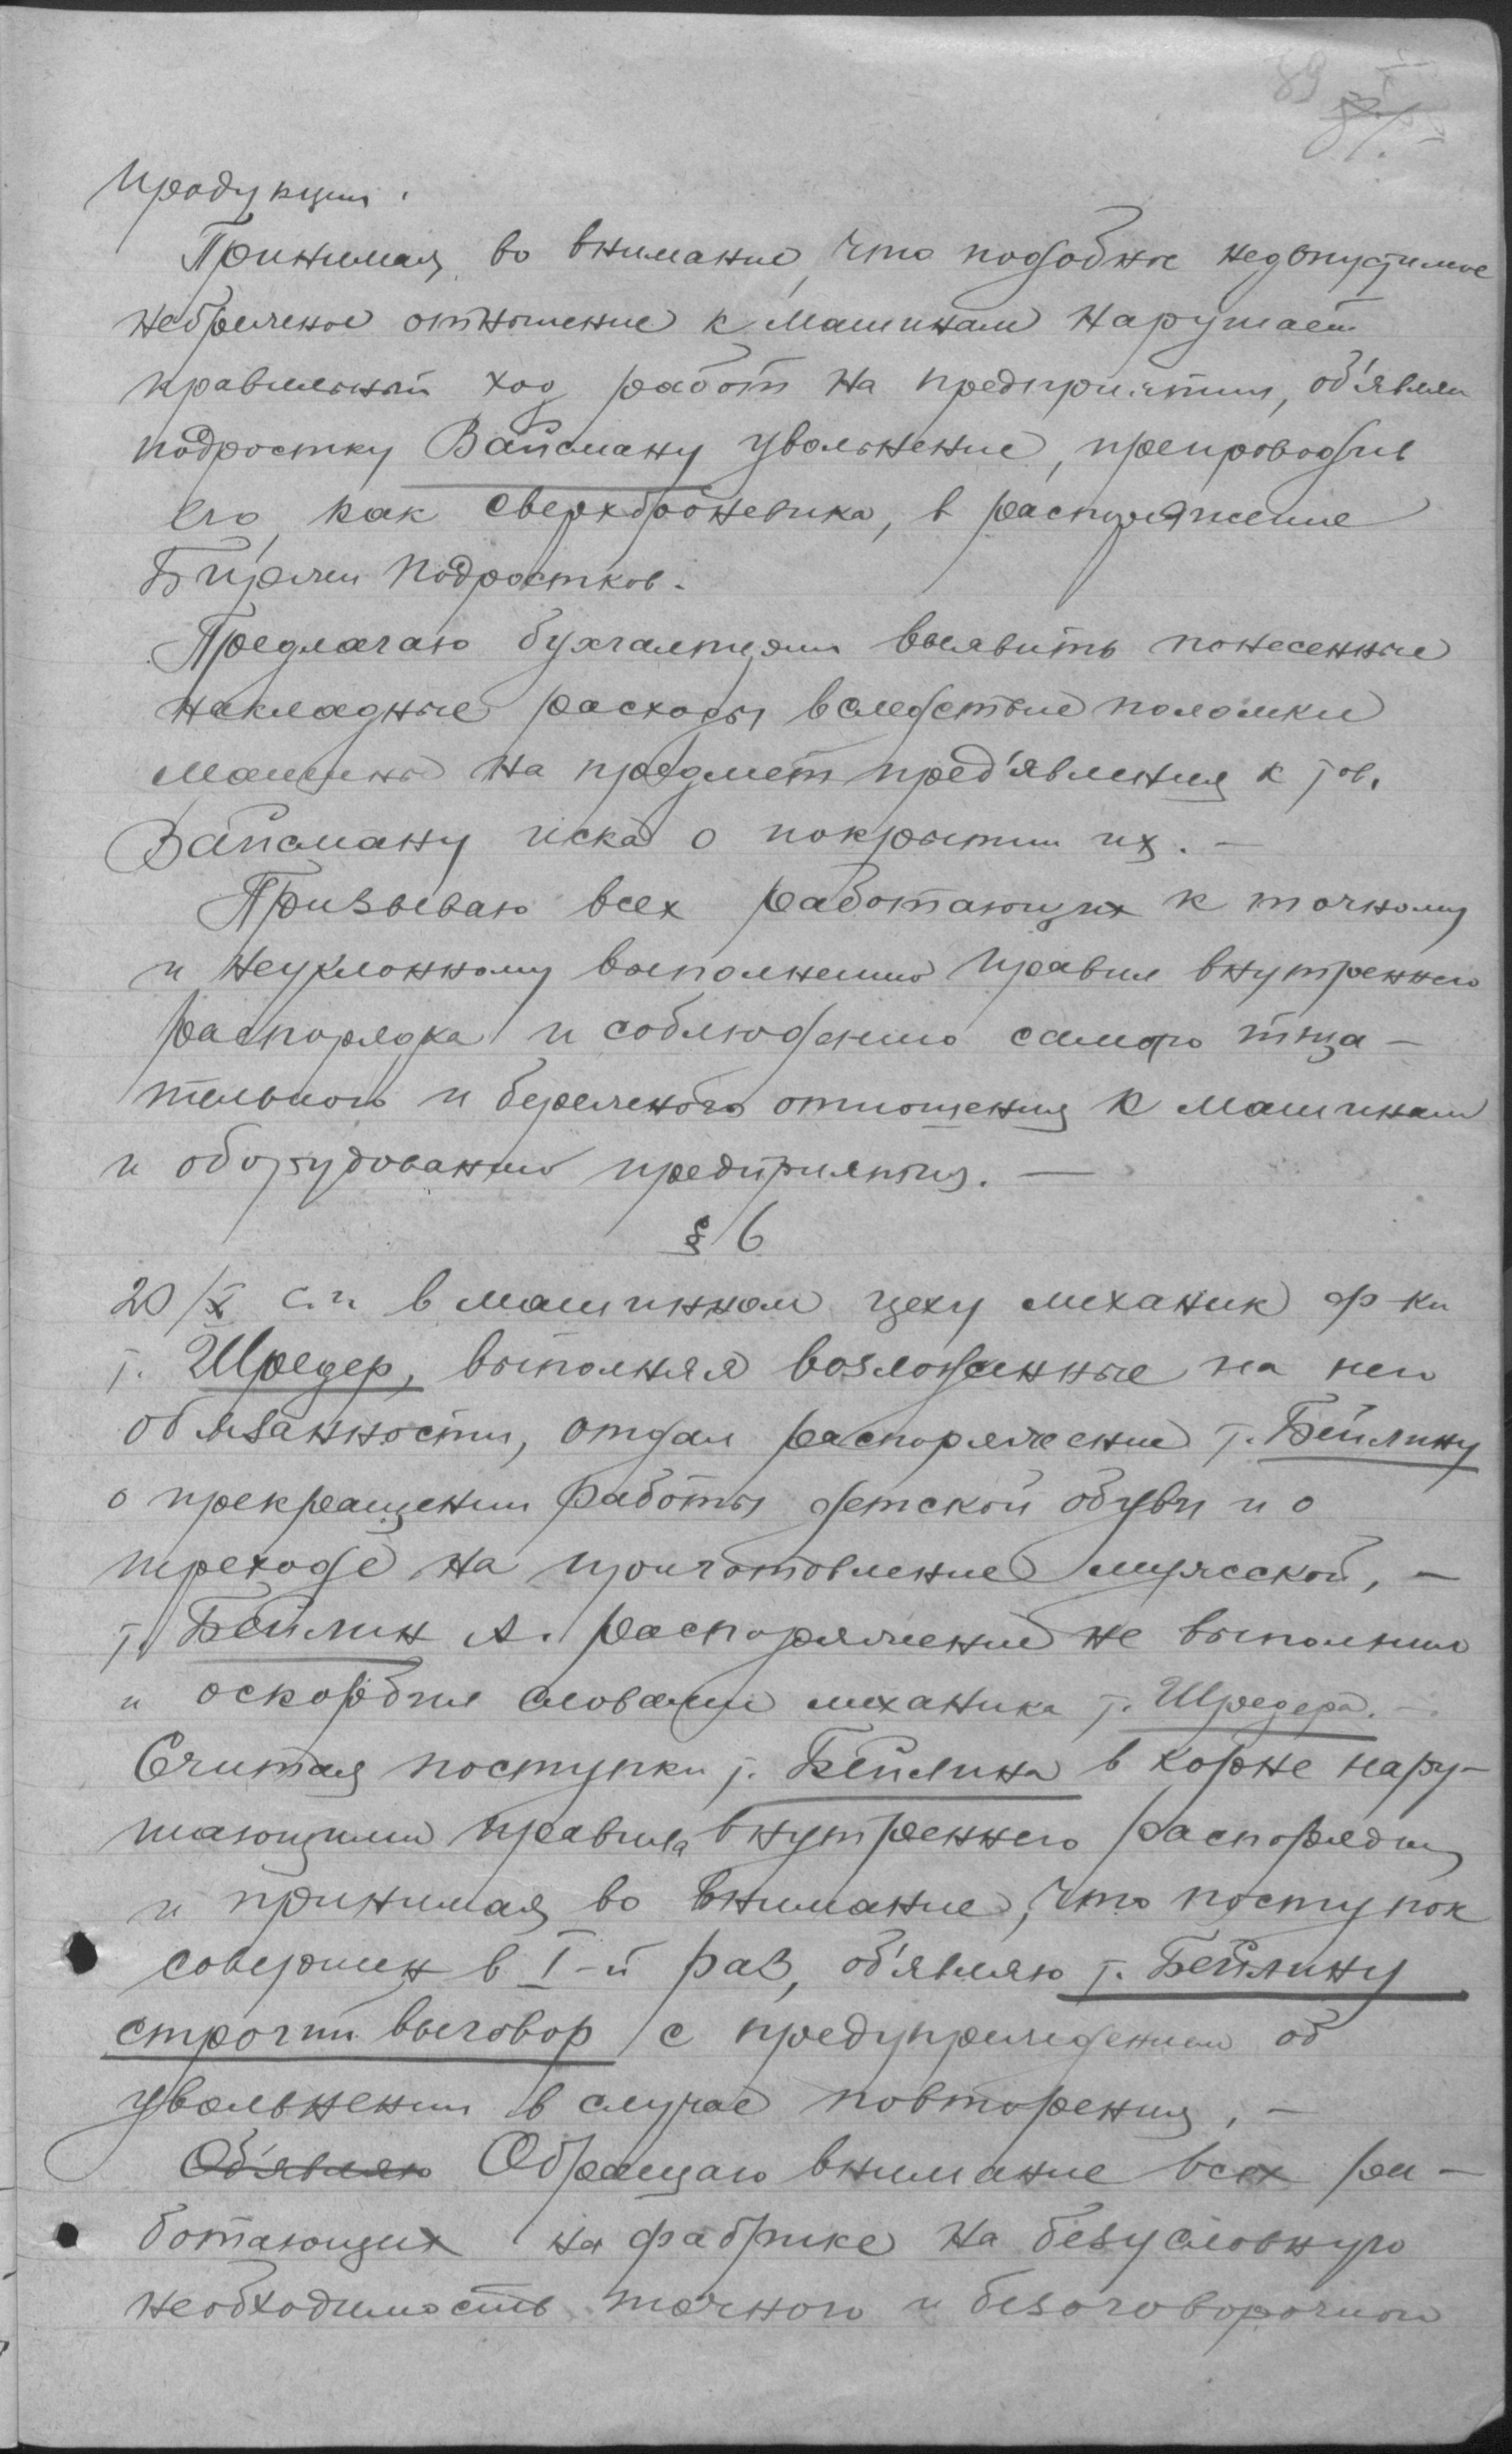 89
продукции.
Принимая во внимание, что подобное недопустимое
небрежное отношение к машинам нарушает
правильный ход работ на предприятии, об'явля
подростку Вайсману увольнение, препроводив
его, как сверхброневика, в распоряжение
Биржи подростков.
Предлагаю бухгалтерии выявить понесенные
накладные расходы вследствие поломки
машины на предмет пред'явления к тов.
Вайсману иска о покрытии их. —
Призываю всех работающих к точному
и неуклонному выполнению правил внутреннего
распорядка и соблюдению самого тща-
тельного и бережного отношения к машинам
и оборудованию предприятия. —
§ 6
20/X с.г. в машинном цеху механик ф-ки
т. Шредер, выполняя возложенные на него
обязанности, отдал распоряжение т. Бейлину
о прекращении работы детской обуви и о
переходе на приготовление мужской, —
т. Бейлин А. распоряжение не выполнил
и оскорбил словами механика т. Шредера. —
Считая поступки т. Бейлина в корне нару-
шающими правила внутреннего распорядка
и принимая во внимание, что поступок
совершен в I-й раз, об'являю т. Бейлину
строгий выговор с предупреждением об
увольнении в случае повторения. —
Об'являю Обращаю внимание всех ра-
ботающих на фабрике на безусловную
необходимость точного и безоговорочного